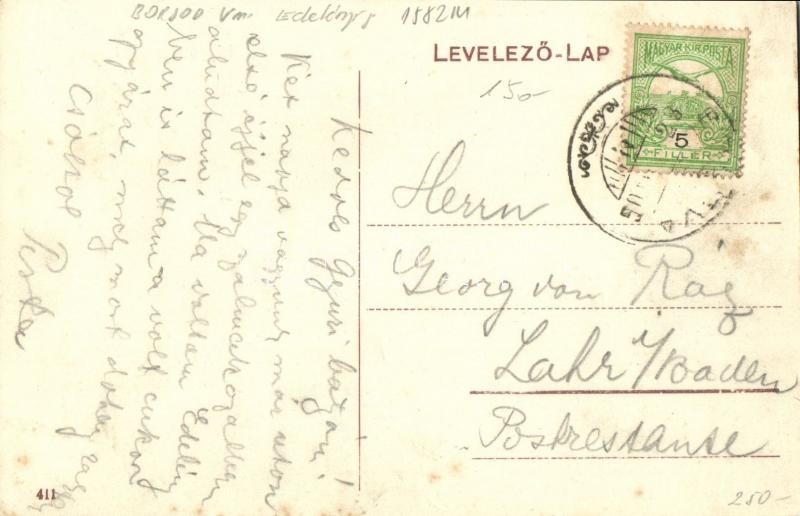 BORSOD Vm. Edelény 1582111
LEVELEZŐ-LAP
150-
MAGYAR KIR. POSTA
5
FILLÉR
Kedves Gyuri bátyám!
Két napja vagyunk már úton
első éjjel egy
aludtam. Ma voltam Edelény
ben is láttam a volt cukor
gyárat, meg most
Csókol
Pista
Herrn
Georg von Rág
Lahr i/Baden
Postrestante
411
250-